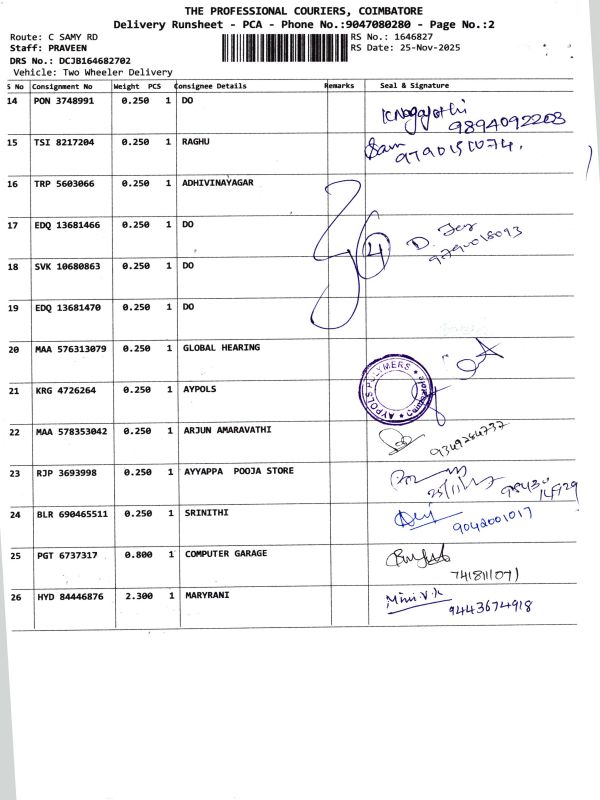 THE PROFESSIONAL COURIERS, COIMBATORE
Delivery Runsheet - PCA - Phone No.:9047080280 - Page No.:2
Route: C SAMY RD RS No.: 1646827
Staff: PRAVEEN RS Date: 25-Nov-2025
DRS No.: DCJB164682702
Vehicle: Two Wheeler Delivery
S No Consignment No Weight PCS Consignee Details Remarks Seal & Signature
14 PON 3748991 0.250 1 DO
9894092203
15 TSI 8217204 0.250 1 RAGHU Sam
16 TRP 5603066 0.250 1 ADHIVINAYAGAR
17 EDQ 13681466 0.250 1 DO 4
18 SVK 10680863 0.250 1 DO
19 EDQ 13681470 0.250 1 DO
20 MAA 576313079 0.250 1 GLOBAL HEARING
21 KRG 4726264 0.250 1 AYPOLS AYPOLS POLYMERS
22 MAA 578353042 0.250 1 ARJUN AMARAVATHI
23 RJP 3693998 0.250 1 AYYAPPA POOJA STORE
24 BLR 690465511 0.250 1 SRINITHI
9042001017
25 PGT 6737317 0.800 1 COMPUTER GARAGE
26 HYD 84446876 2.300 1 MARYRANI Mini.V.k
9443674918